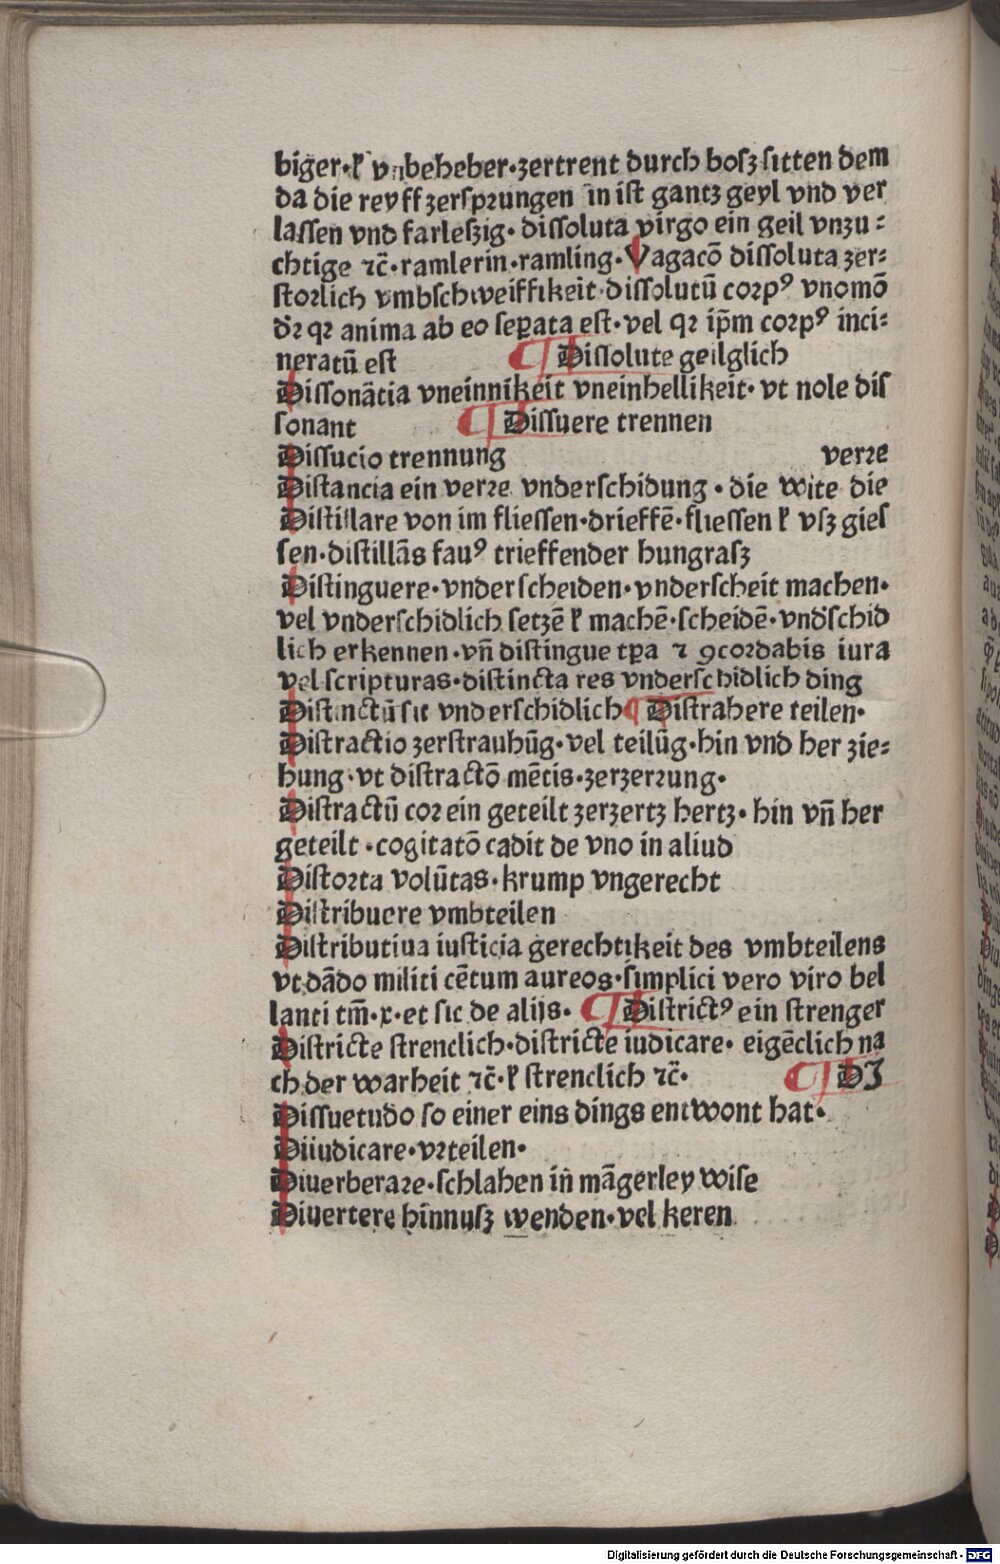 biger·ł vnbeheber·zertrent durch boſz ſitten dem
da die reyff zerſpꝛungen in iſt gantz geyl vnd ver
laſſen vnd farleſzig· diſſoluta virgo ein geil vnzu⸗
chtige ⁊c̄·ramlerin·ramling·Vagacō diſſoluta zer⸗
ſtoꝛlich vmbſchweiffikeit·diſſolutū coꝛpꝰ vnomō
dr̄ qꝛ anima ab eo ſeꝑata eſt·vel qꝛ ip̄m coꝛpꝰ inci⸗
neratū eſt ¶ Diſſolute geilglich
Diſſonātia vneinnikeit vneinhellikeit· vt nole diſ
ſonant ¶ Diſſuere trennen
Diſſucio trennung verꝛe
Diſtancia ein verꝛe vnderſchidung · die wite die
Diſtillare von im flieſſen·drieffē·flieſſen ł vſz gieſ
ſen·diſtillās fauꝰ trieffender hungraſz
Diſtinguere·vnderſcheiden·vnderſcheit machen·
vel vnderſchidlich ſetzē ł machē·ſcheidē·vnd̄ſchid
lich erkennen·vn̄ diſtingue tꝑa ⁊ ꝯcoꝛdabis iura
vel ſcripturas·diſtincta res vnderſchidlich ding
Diſtinctū ſit vnderſchidlich ¶ Diſtrahere teilen·
Diſtractio zerſtrauhūg·vel teilūg·hin vnd her zie⸗
hung·vt diſtractō mētis·zerzerꝛung·
Diſtractū coꝛ ein geteilt zerzertz hertz· hin vn̄ her
geteilt ·cogitatō cadit de vno in aliud
Diſtoꝛta volūtas·krump vngerecht
Diſtribuere vmbteilen
Diſtributiua iuſticia gerechtikeit des vmbteilens
vt dādo militi cētum aureos·ſimplici vero viro bel
lanti tm̄·x·et ſic de alijs· ¶ Diſtrictꝰ ein ſtrenger
Diſtricte ſtrenclich·diſtricte iudicare· eigēclich na
ch der warheit ⁊c̄·ł ſtrenclich ⁊c̄· ¶ DI
Diſſuetudo ſo einer eins dings entwont hat·
Diiudicare·vꝛteilen·
Diuerberaꝛe·ſchlahen in māgerley wiſe
Diuertere hinnuſz wenden·vel keren
Digitalisierung gefördert durch die Deutsche Forschungsgemeinschaft - DFG